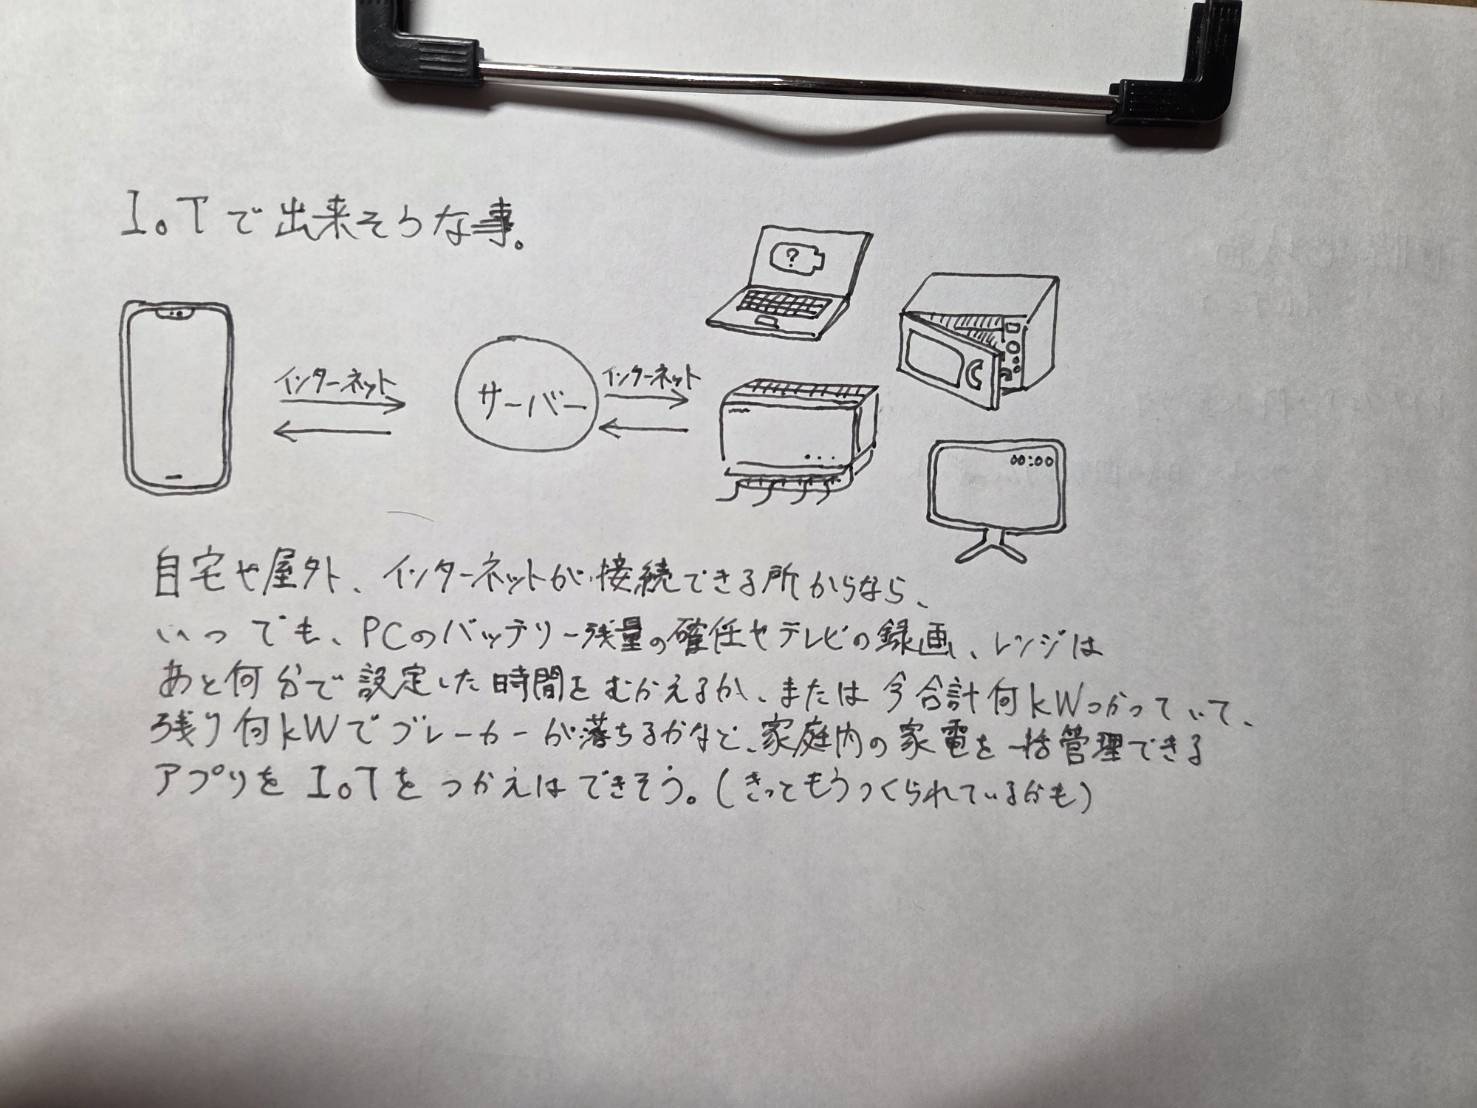 IoTで出来そうな事。
インターネット
サーバー
インターネット
?
00:00
自宅や屋外、インターネットが接続できる所からなら、
いつでも、PCのバッテリー残量の確任やテレビの録画、レンジは
あと何分で設定した時間をむかえるか、または今合計何kWつかっていて、
残り何kWでブレーカーが落ちるかなど、家庭内の家電を一括管理できる
アプリをIoTをつかえばできそう。(きっともうつくられているかも)